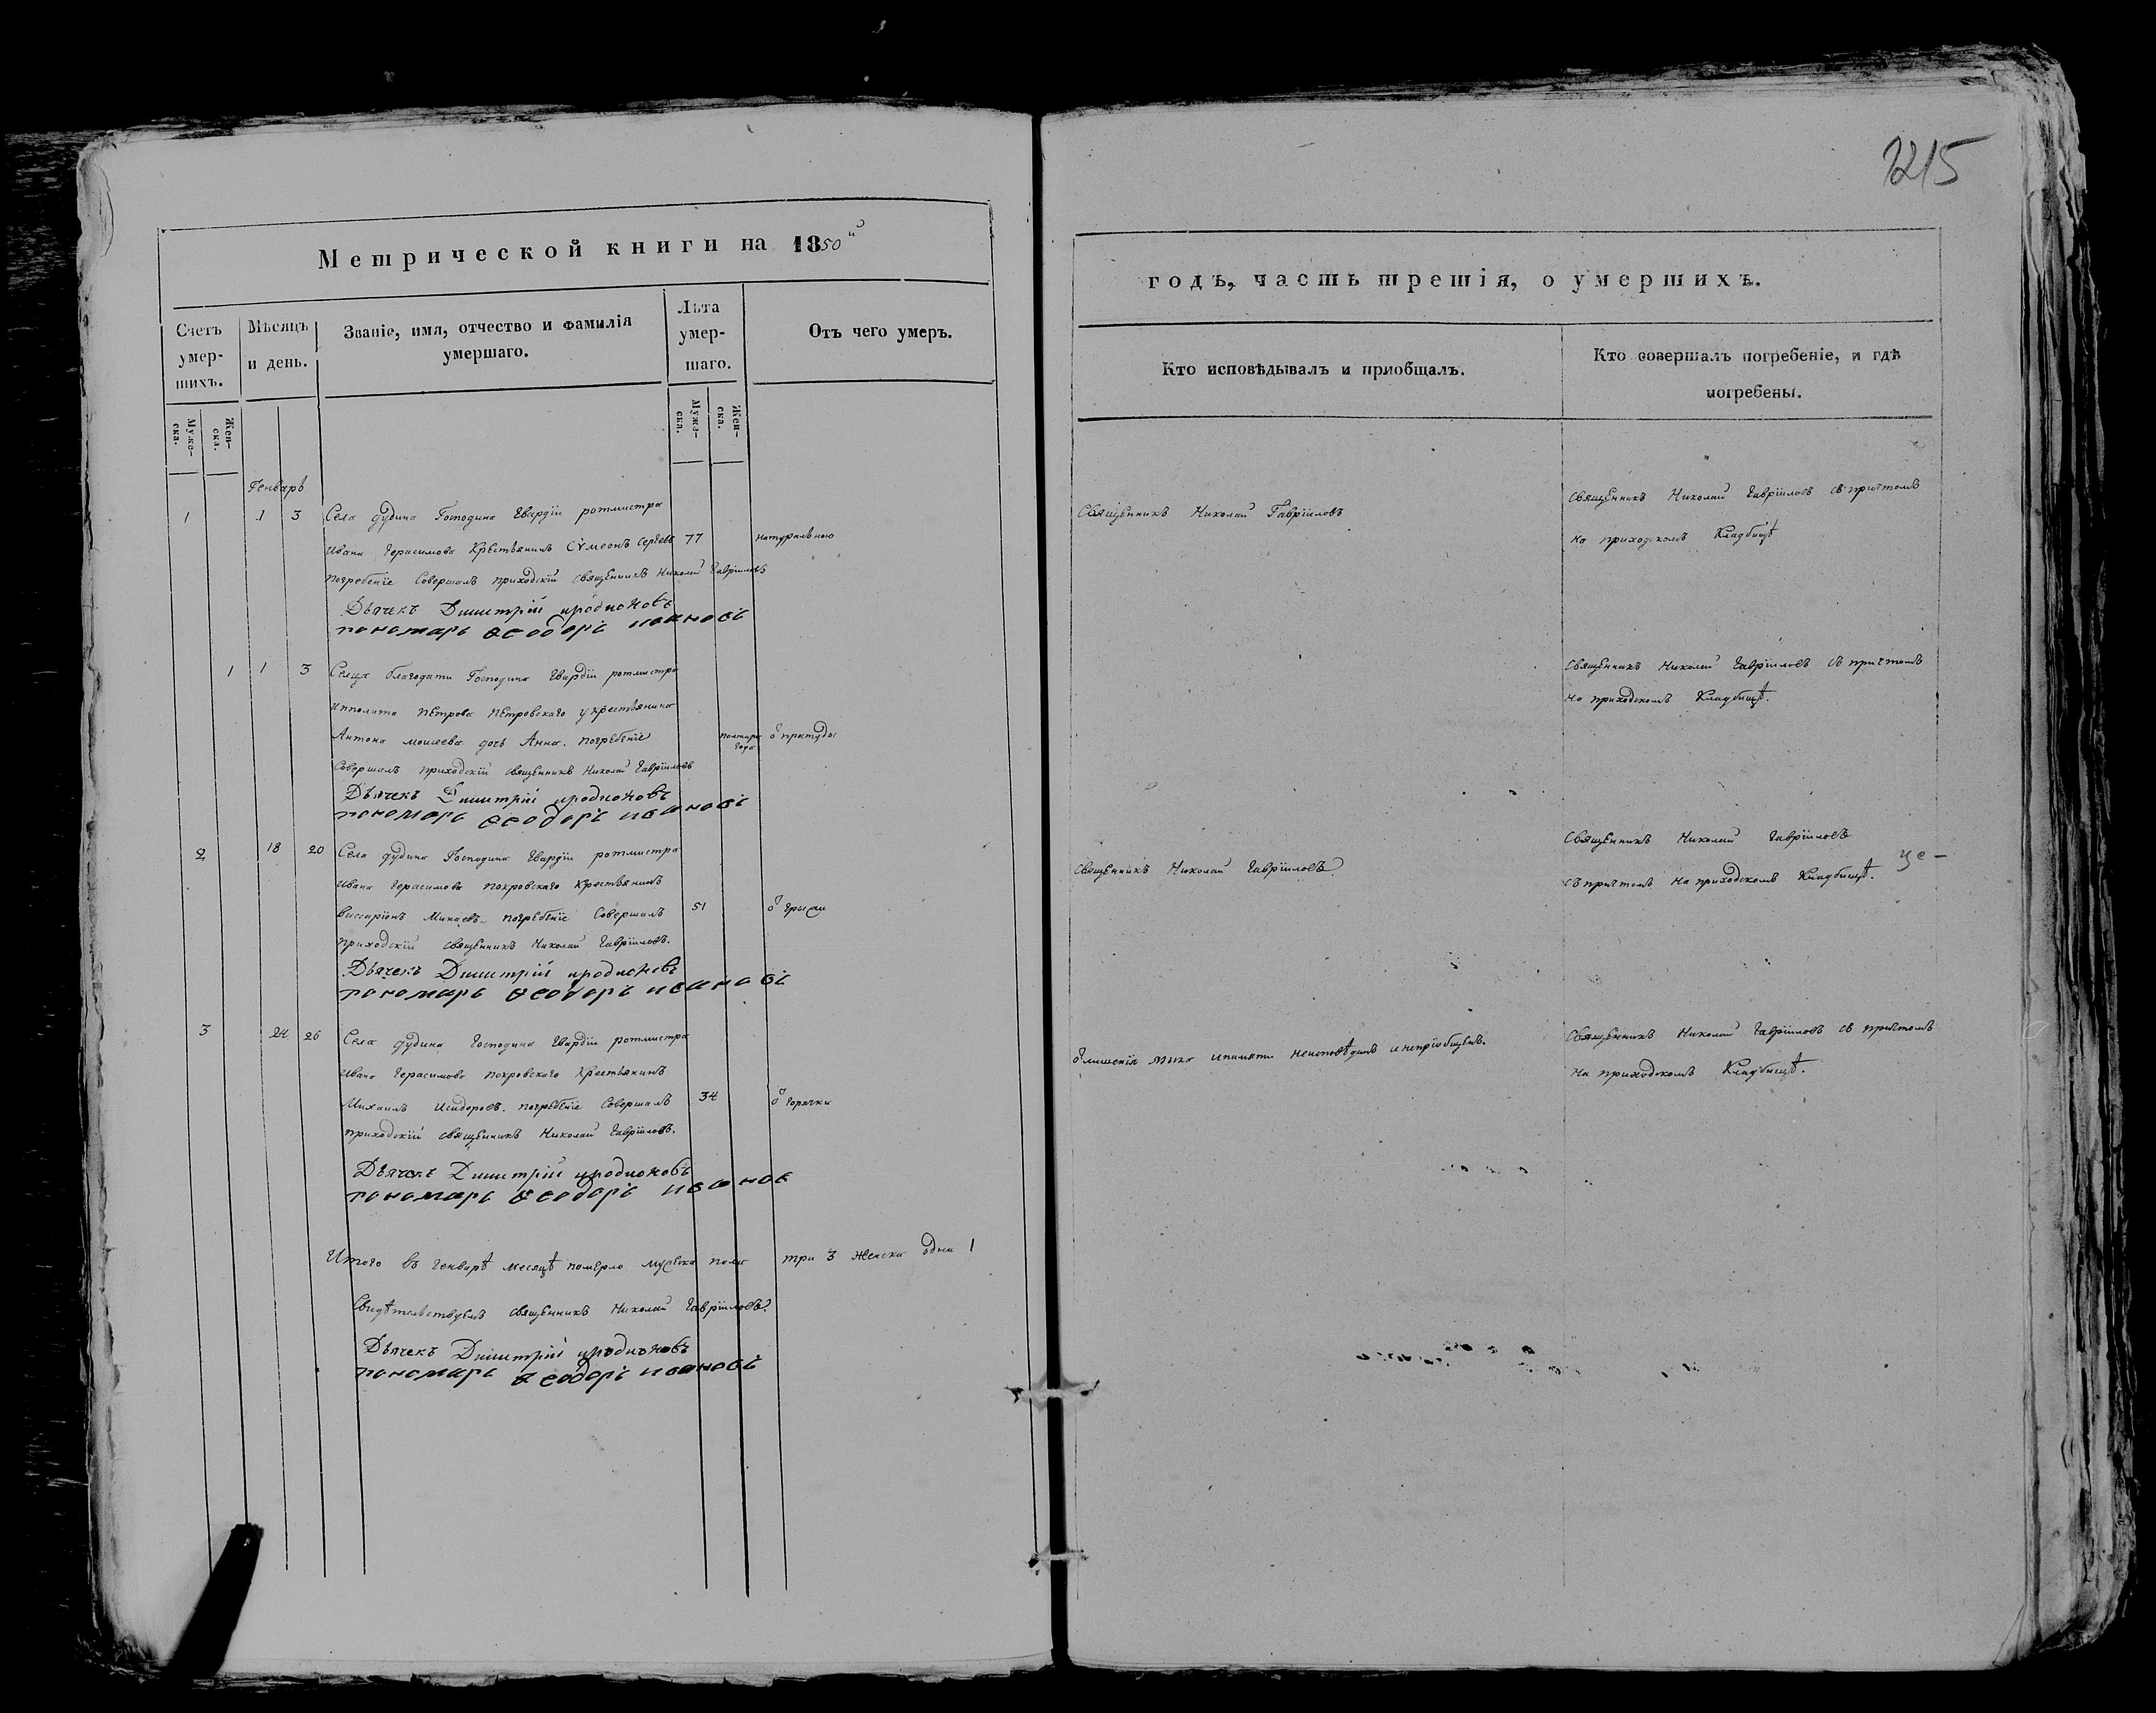 1215
Метрической книги на 1850й
годъ, часть третія, о умершихъ.
Счетъ умер-шихъ.
Мѣсяцъ и день.
Званіе, имя, отчество и фамилія умершаго.
Лѣта умер-шаго.
Отъ чего умеръ.
Кто исповѣдывалъ и пріобщалъ.
Кто совершалъ погребеніе, и гдѣ погребены.
Муже-ска.
Жен-ска.
Муже-ска.
Жен-ска.
Генварь
1 1 3 Села дудина Господина Гвардіи ротмистра
Ивана Герасимова Крестьянинъ Сѵмеонъ Сергеев 77 натуральною
погребеніе Совершалъ приходскій священникъ Николай Гавріиловъ
Дьячекъ Димитрій иродионовъ
пономарь Ѳеодоръ ивановъ
Священникъ Николай Гавріиловъ
Священникъ Николай Гавріиловъ съ причтомъ
на приходскомъ Кладбищѣ
1 1 3 Сельца благодати Господина Гвардіи ротмистра
Ипполита Петрова Петровскаго крестьянина
Антона моисеева дочь Анна. погребеніе полтора года ѿ прастуды
Совершалъ приходскій священникъ Николай Гавріиловъ
Дьячекъ Димитрій иродионовъ
пономарь Ѳеодоръ ивановъ
Священникъ Николай Гавріиловъ съ причтомъ
на приходскомъ Кладбищѣ.
2 18 20 Села дудина Господина Гвардіи ротмистра
Ивана Герасимова покровскаго крестьянинъ
Виссаріонъ Минаевъ. погребеніе Совершалъ 51 ѿ грыжи
приходскій священникъ Николай Гавріиловъ.
Дьячекъ Димитрій иродионовъ
пономарь Ѳеодоръ ивановъ
Священникъ Николай Гавріиловъ
Священникъ Николай Гавріиловъ
съ причтомъ на приходскомъ Кладбищѣ.
3 24 26 Села дудина Господина Гвардіи ротмистра
Ивана Герасимова покровскаго крестьянинъ
Михаилъ Исидоровъ. погребеніе Совершалъ 34 ѿ горячки
приходскій священникъ Николай Гавріиловъ.
Дьячекъ Димитрій иродионовъ
пономарь Ѳеодоръ иванов
ѿ лишенія языка и памяти неисповѣданъ и непріобщенъ.
Священникъ Николай Гавріиловъ съ причтомъ
на приходскомъ Кладбищѣ.
Итого въ генварѣ месяцѣ померло мужска пола три 3 женска одна 1
Свидѣтельствуемъ священникъ Николай Гавріиловъ.
Дьячекъ Димитрій иродионовъ
пономарь Ѳеодоръ ивановъ